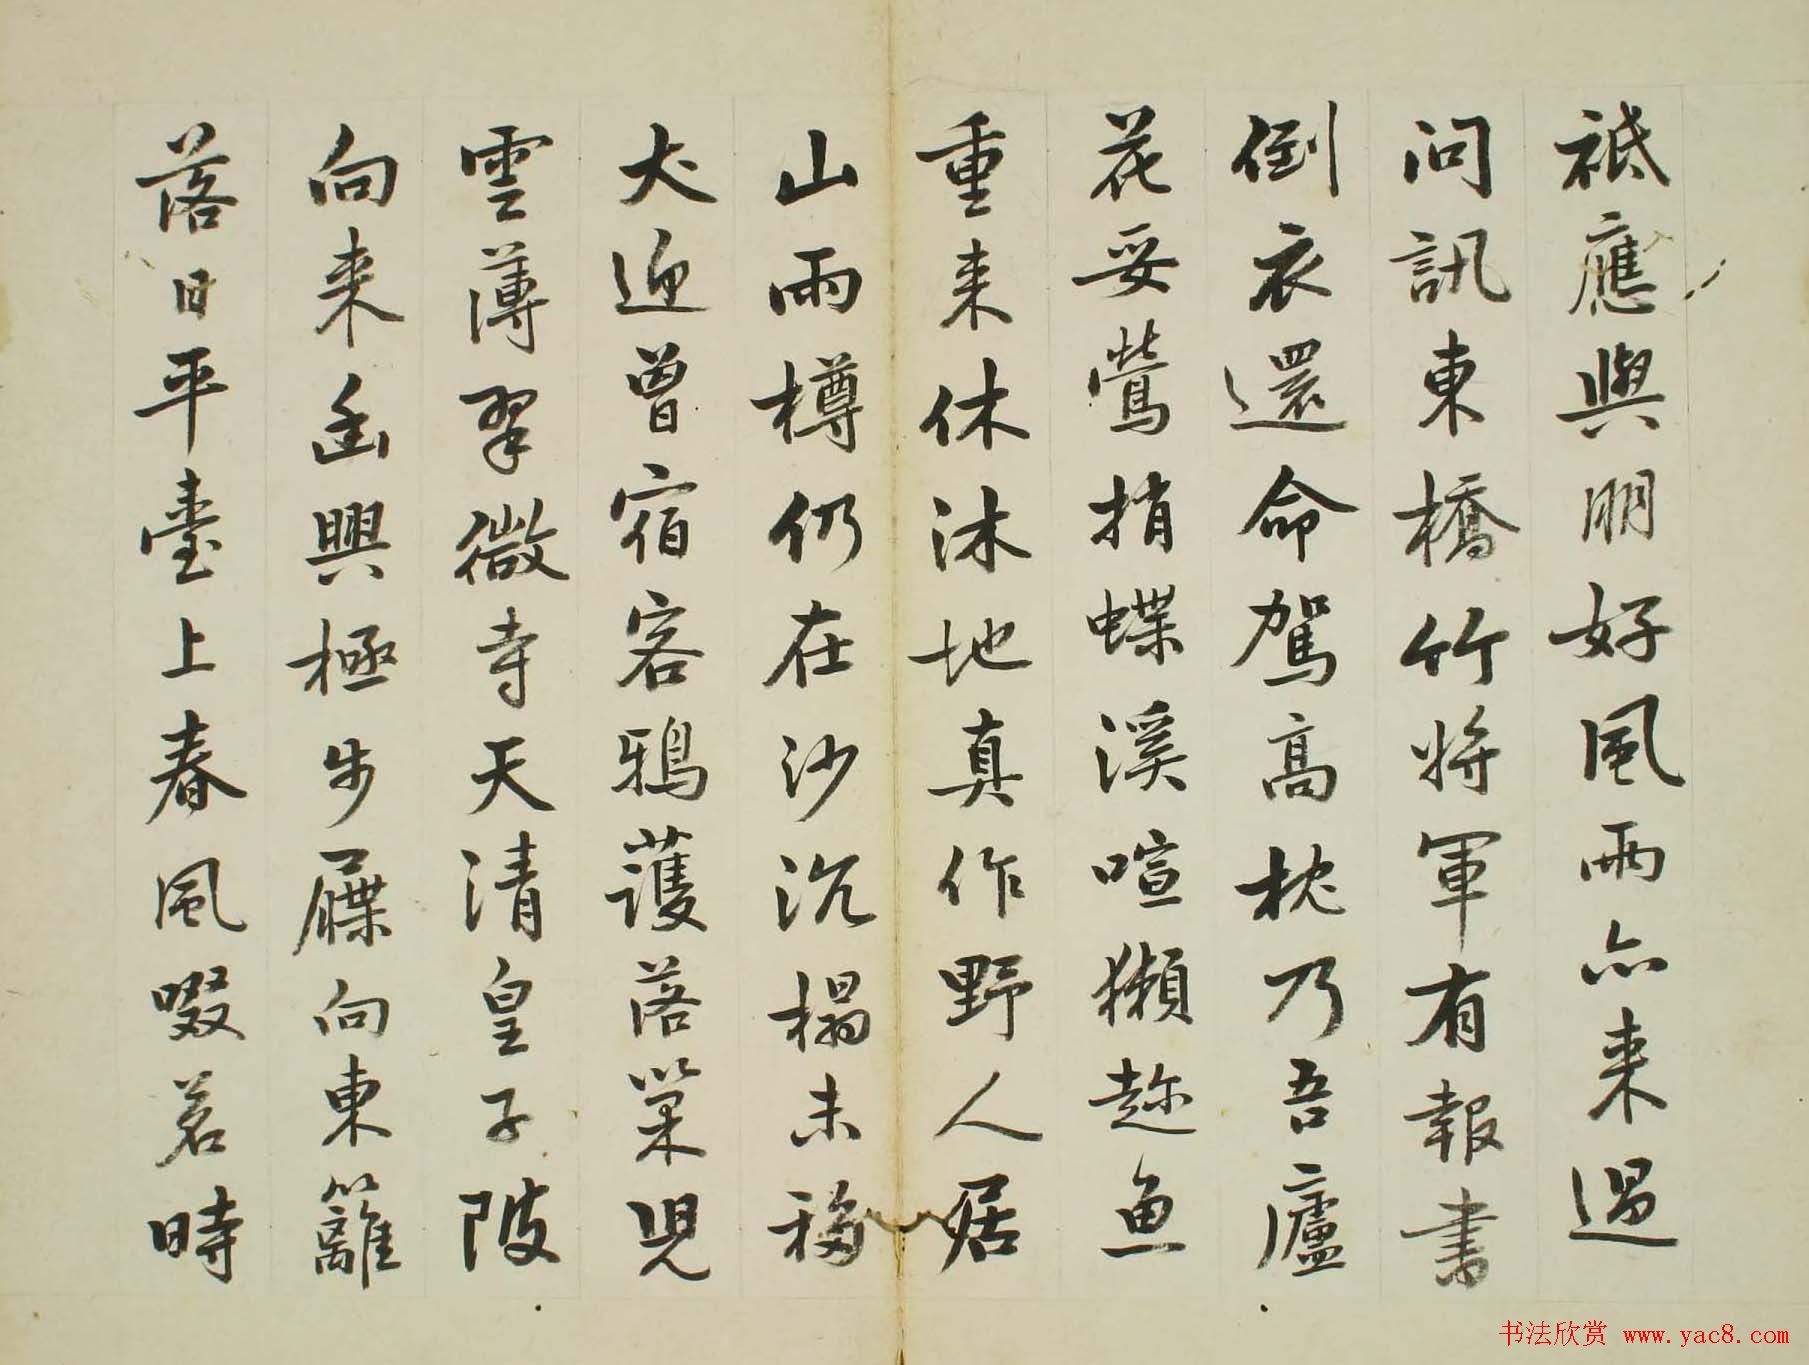 祇應與朋好風雨亦来過
問訊東橋竹將軍有報書
倒衣還命駕高枕乃吾廬
花妥鶯捎蝶溪喧獺趂魚
重来休沐地真作野人居
山雨樽仍在沙沉榻未移
犬迎曾宿客鴉護落巢兒
雲薄翠微寺天清皇子陂
向来幽興極步屧向東籬
落日平臺上春風啜茗時
书法欣赏 www.yac8.com